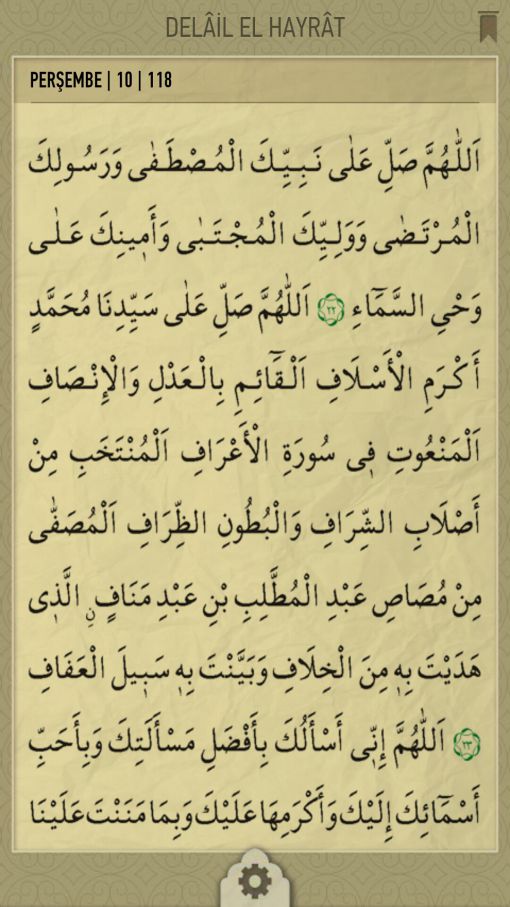 DELÂİL EL HAYRÂT
PERŞEMBE | 10 | 118
اَللّٰهُمَّ صَلِّ عَلٰى نَبِيِّكَ الْمُصْطَفٰى وَرَسُولِكَ
الْمُرْتَضٰى وَوَلِيِّكَ الْمُجْتَبٰى وَأَمِينِكَ عَلٰى
وَحْيِ السَّمَٓاءِ ٢٢ اَللّٰهُمَّ صَلِّ عَلٰى سَيِّدِنَا مُحَمَّدٍ
أَكْرَمِ الْأَسْلَافِ اَلْقَٓائِمِ بِالْعَدْلِ وَالْإِنْصَافِ
اَلْمَنْعُوتِ فِى سُورَةِ الْأَعْرَافِ اَلْمُنْتَخَبِ مِنْ
أَصْلَابِ الشِّرَافِ وَالْبُطُونِ الظِّرَافِ اَلْمُصَفّٰى
مِنْ مُصَاصِ عَبْدِ الْمُطَّلِبِ بْنِ عَبْدِ مَنَافٍ نِ الَّذِى
هَدَيْتَ بِهٖ مِنَ الْخِلَافِ وَبَيَّنْتَ بِهٖ سَبِيلَ الْعَفَافِ
٢٣ اَللّٰهُمَّ إِنِّى أَسْأَلُكَ بِأَفْضَلِ مَسْأَلَتِكَ وَبِأَحَبِّ
أَسْمَٓائِكَ إِلَيْكَ وَأَكْرَمِهَا عَلَيْكَ وَبِمَا مَنَنْتَ عَلَيْنَا